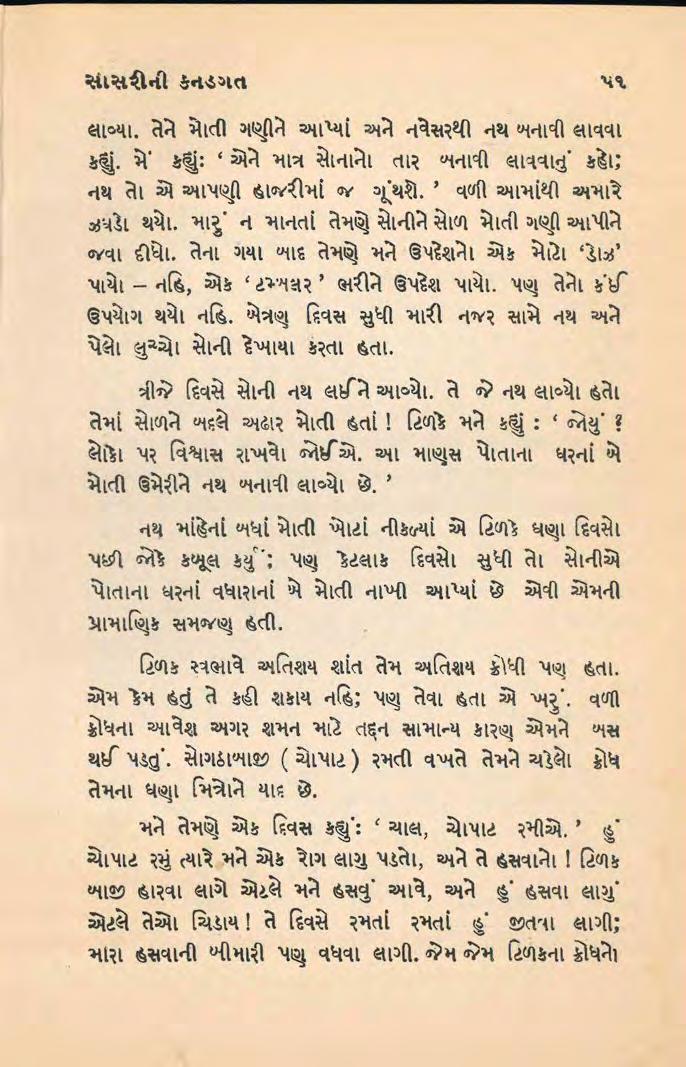 સાસરીની કનડગત ૫૧
લાવ્યા. તેને મોતી ગણીને આપ્યાં અને નવેસરથી નથ બનાવી લાવવા
કહ્યું. મેં કહ્યું: ‘ એને માત્ર સોનાનો તાર બનાવી લાવવાનું કહો;
નથ તો એ આપણી હાજરીમાં જ ગૂંથશે. ’ વળી આમાંથી અમારે
ઝઘડો થયો. મારું ન માનતાં તેમણે સોનીને સોળ મોતી ગણી આપીને
જવા દીધો. તેના ગયા બાદ તેમણે મને ઉપદેશનો એક મોટો ‘ડોઝ’
પાયો – નહિ, એક ‘ ટમ્બલર ’ ભરીને ઉપદેશ પાયો. પણ તેનો કંઈ
ઉપયોગ થયો નહિ. બેત્રણ દિવસ સુધી મારી નજર સામે નથ અને
પેલો લુચ્ચો સોની દેખાયા કરતા હતા.
ત્રીજે દિવસે સોની નથ લઈને આવ્યો. તે જે નથ લાવ્યો હતો
તેમાં સોળને બદલે અઢાર મોતી હતાં ! ટિળકે મને કહ્યું : ‘ જોયું ?
લોકો પર વિશ્વાસ રાખવો જોઈએ. આ માણસ પોતાના ઘરનાં બે
મોતી ઉમેરીને નથ બનાવી લાવ્યો છે. ’
નથ માંહેનાં બધાં મોતી ખોટાં નીકળ્યાં એ ટિળકે ઘણા દિવસો
પછી જોકે કબૂલ કર્યું; પણ કેટલાક દિવસો સુધી તો સોનીએ
પોતાના ઘરનાં વધારાનાં બે મોતી નાખી આપ્યાં છે એવી એમની
પ્રામાણિક સમજણ હતી.
ટિળક સ્વભાવે અતિશય શાંત તેમ અતિશય ક્રોધી પણ હતા.
એમ કેમ હતું તે કહી શકાય નહિ; પણ તેવા હતા એ ખરું. વળી
ક્રોધના આવેશ અગર શમન માટે તદ્દન સામાન્ય કારણ એમને બસ
થઈ પડતું. સોગઠાબાજી ( ચોપાટ ) રમતી વખતે તેમને ચડેલો ક્રોધ
તેમના ઘણા મિત્રોને યાદ છે.
મને તેમણે એક દિવસ કહ્યું: ‘ ચાલ, ચોપાટ રમીએ. ’ હું
ચોપાટ રમું ત્યારે મને એક રોગ લાગુ પડતો, અને તે હસવાનો ! ટિળક
બાજી હારવા લાગે એટલે મને હસવું આવે, અને હું હસવા લાગું
એટલે તેઓ ચિડાય ! તે દિવસે રમતાં રમતાં હું જીતવા લાગી;
મારા હસવાની બીમારી પણ વધવા લાગી. જેમ જેમ ટિળકના ક્રોધનો